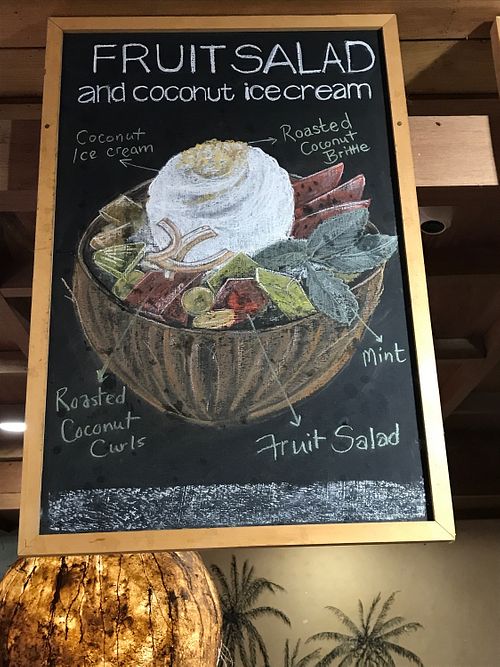 FRUIT SALAD
and coconut icecream
Coconut
Ice cream
Roasted
Coconut
Brittle
Mint
Roasted
Coconut
Curls
Fruit Salad